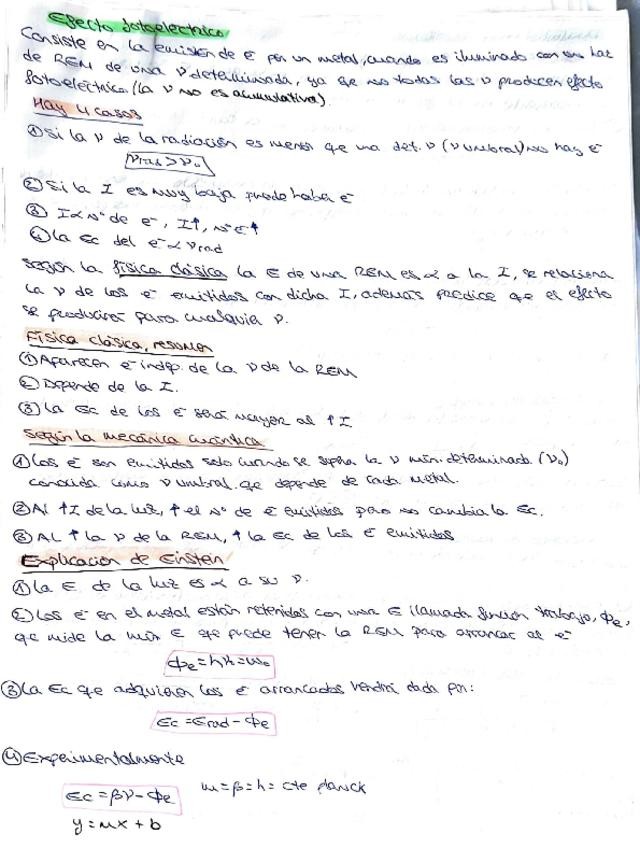 Efecto fotoeléctrico
Consiste en la emisión de e⁻ por un metal, cuando es iluminado con un haz
de REM de una ν determinada, ya qe no todas las ν producen efecto
fotoeléctrico (la ν no es acumulativa).
Hay 4 casos
① Si la ν de la radiación es menor qe una det. ν (ν umbral) no hay e⁻
νrad > ν₀
② Si la I es muy baja puede haber e⁻
③ I ∝ nº de e⁻, I↑, nº e⁻↑
④ La Ec del e⁻ ∝ νrad
Según la física clásica la E de una REM es ∝ a la I, se relaciona
la ν de los e⁻ emitidos con dicha I, además predice qe el efecto
se producirá para cualquier ν.
Física clásica, resumen
① Aparecen e⁻ indep. de la ν de la REM
② Depende de la I.
③ La Ec de los e⁻ será mayor al ↑ I
Según la mecánica cuántica
① Los e⁻ son emitidos solo cuando se supera la ν mín. determinada (ν₀)
conocida como ν umbral. qe depende de cada metal.
② Al ↑ I de la luz, ↑ el nº de e⁻ emitidos pero no cambia la Ec.
③ AL ↑ la ν de la REM, ↑ la Ec de los e⁻ emitidos
Explicación de Einstein
① La E de la luz es ∝ a su ν.
② Los e⁻ en el metal están retenidos con una E llamada función trabajo, Φe,
qe mide la mín E qe puede tener la REM para arrancar al e⁻
③ La Ec qe adquieren los e⁻ arrancados vendrá dada por:
Ec = Erad - Φe
④ Experimentalmente
Ec = βν - Φe m = β = h = cte planck
y = mx + b